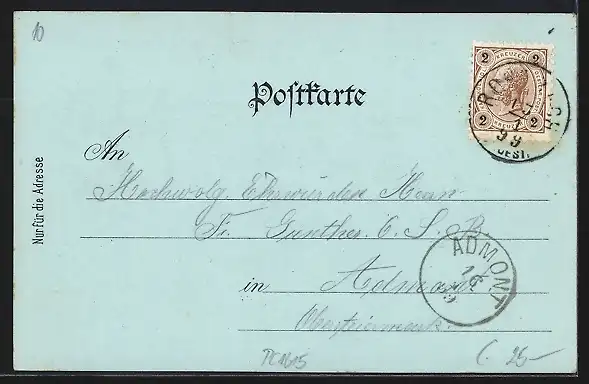 10
2 KREUZER 2
2 KREUZER 2
99
OEST.
Postkarte
An
Hochwolg. Ehrwürden Herrn
Fr. Gunther O. S. B.
ADMONT
in Admont
Obersteiermark.
Nur für die Adresse
25—